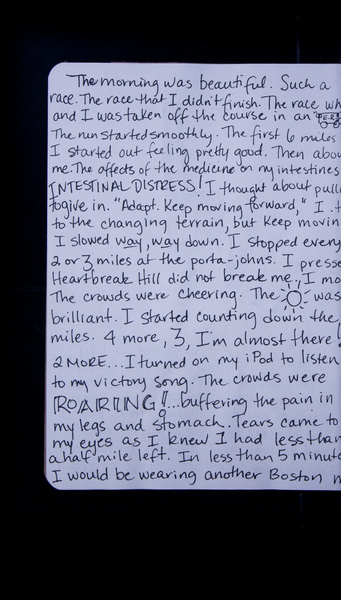 The morning was beautiful. Such a
race. The race that I didn't finish. The race wh
and I was taken off the course in an
The run started smoothly. The first 6 miles
I started out feeling pretty good. Then abou
me. The effects of the medicine on my intestines
INTESTINAL DISTRESS! I thought about pull
to give in. "Adapt. Keep moving forward," I
to the changing terrain, but keep movin
I slowed way, way down. I stopped every
2 or 3 miles at the porta-johns. I presse
Heartbreak Hill did not break me, I mo
The crowds were cheering. The was
brilliant. I started counting down the
miles. 4 more, 3, I'm almost there!
2 MORE... I turned on my iPod to listen
to my victory song. The crowds were
ROARING!...buffering the pain in
my legs and stomach. Tears came to
my eyes as I knew I had less than
a half mile left. In less than 5 minute
I would be wearing another Boston m